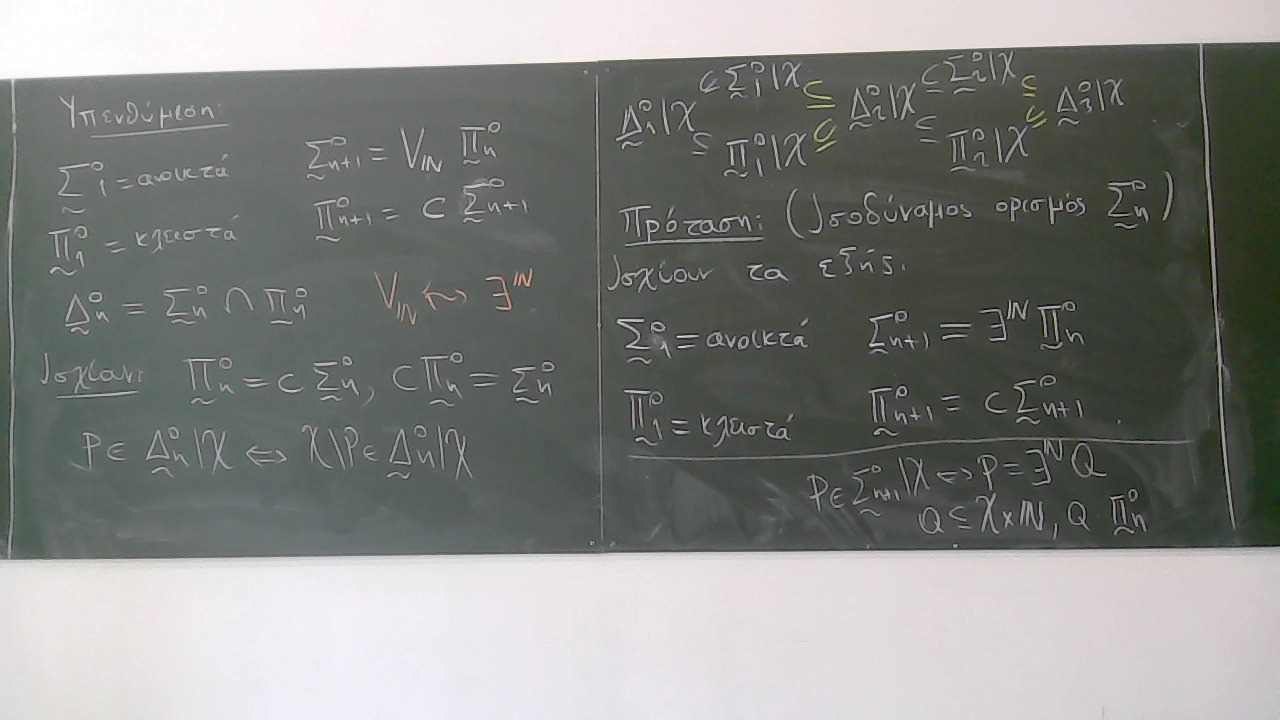 Υπενθύμιση:
Σ̰⁰₁ = ανοικτά   Σ̰⁰ₙ₊₁ = V_ℕ Π̰⁰ₙ
Π̰⁰₁ = κλειστά   Π̰⁰ₙ₊₁ = C Σ̰⁰ₙ₊₁
Δ̰⁰ₙ = Σ̰⁰ₙ ∩ Π̰⁰ₙ   V_ℕ ↭ ∃^ℕ
Ισχύουν: Π̰⁰ₙ = C Σ̰⁰ₙ, C Π̰⁰ₙ = Σ̰⁰ₙ
P ∈ Δ̰⁰ₙ|X ⇔ X\P ∈ Δ̰⁰ₙ|X
⊆ Σ̰⁰₁|X ⊆   ⊆ Σ̰⁰₂|X ⊆
Δ̰⁰₁|X   Δ̰⁰₂|X   Δ̰⁰₃|X
⊆ Π̰⁰₁|X ⊆   ⊆ Π̰⁰₂|X ⊆
Πρόταση: (Ισοδύναμος ορισμός Σ̰⁰ₙ)
Ισχύουν τα εξής.
Σ̰⁰₁ = ανοικτά   Σ̰⁰ₙ₊₁ = ∃^ℕ Π̰⁰ₙ
Π̰⁰₁ = κλειστά   Π̰⁰ₙ₊₁ = C Σ̰⁰ₙ₊₁.
P ∈ Σ̰⁰ₙ₊₁|X ⇔ P = ∃^ℕ Q
Q ⊆ X×ℕ, Q Π̰⁰ₙ